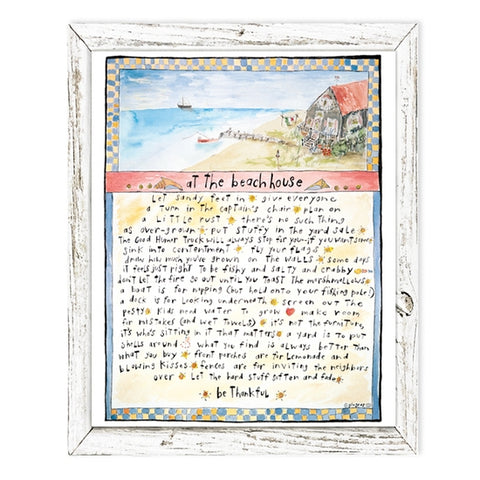 at The beach house
Let sandy feet in give everyone
a turn in the captain's chair plan on
a LiTTLe rust there's no such Thing
as over-grown put stuffy in the yard sale
The Good Humor Truck will always stop for you-if you want some
sink into contentment fly your flags
draw how much you've grown on The walls some days
it feels just right To be fishy and salty and crabby
don't Let the fire go out until you Toast The marshmallows
a boat is for napping (but hold onto your fishing pole!)
a dock is for Looking underneath screen out The
pests Kids need water To grow make room
for mistakes (and wet Towels) it's not the furniture,
it's who's sitting in it That matters a yard is to put
shells around what you find is always better than
what you buy front porches are for Lemonade and
blowing Kisses fences are for inviting the neighbors
over Let the hard stuff soften and fade
be Thankful